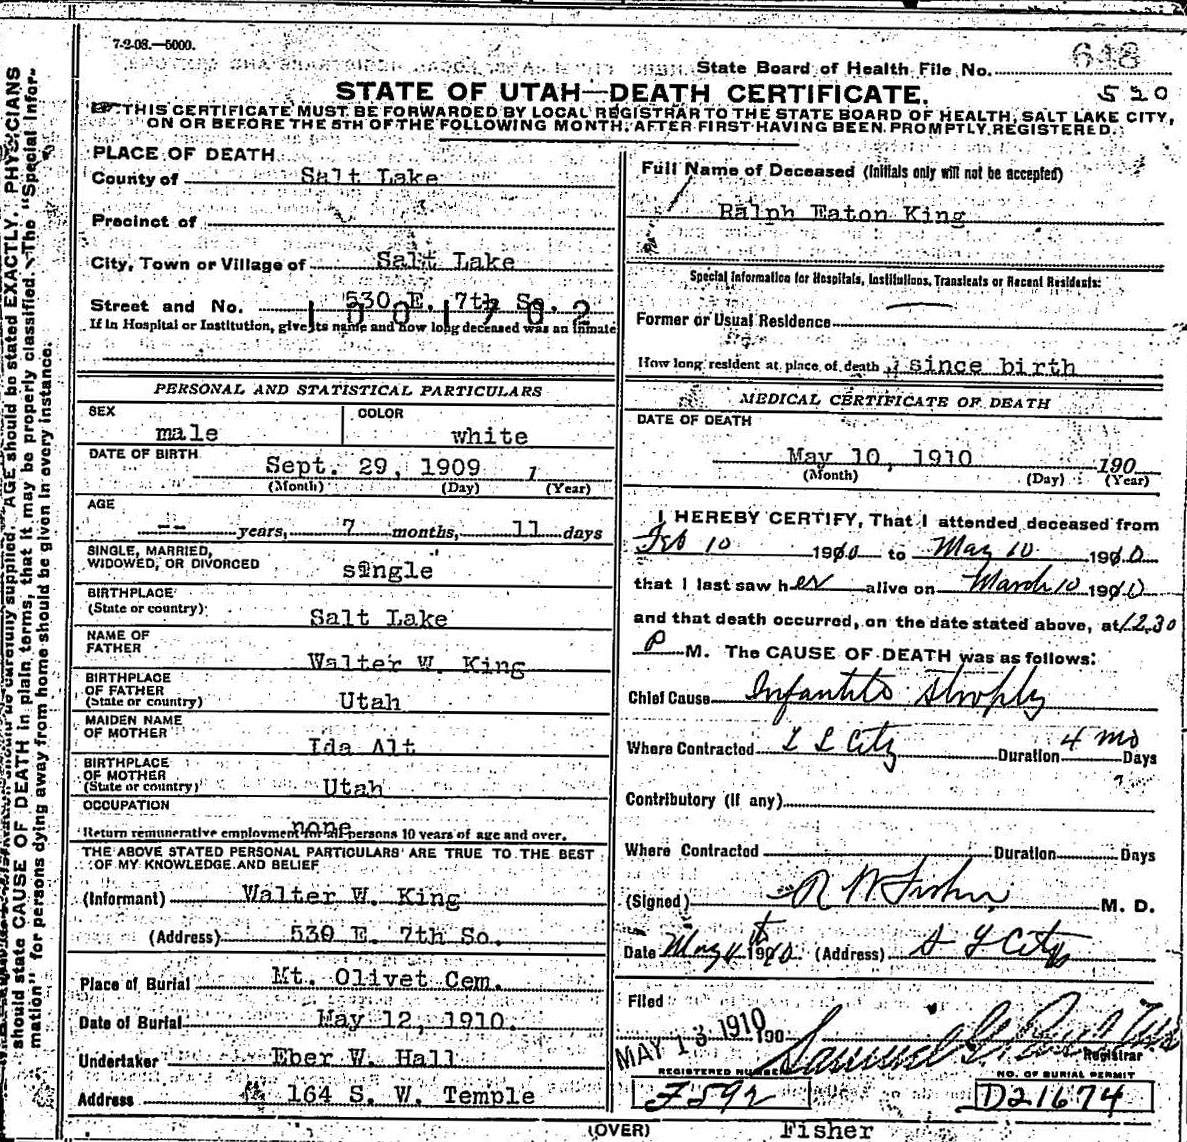 7-2-08.—5000.
State Board of Health File No. 648
STATE OF UTAH—DEATH CERTIFICATE.
520
THIS CERTIFICATE MUST BE FORWARDED BY LOCAL REGISTRAR TO THE STATE BOARD OF HEALTH, SALT LAKE CITY,
ON OR BEFORE THE 5TH OF THE FOLLOWING MONTH, AFTER FIRST HAVING BEEN PROMPTLY REGISTERED.
PHYSICIANS
AGE should be stated EXACTLY.
should state CAUSE OF DEATH in plain terms, that it may be properly classified. The "Special Infor-
mation" for persons dying away from home should be given in every instance.
PLACE OF DEATH
County of Salt Lake
Precinct of
City, Town or Village of Salt Lake
Street and No. 530 E. 7th So.
1001702
If in Hospital or Institution, give its name and how long deceased was an inmate
Full Name of Deceased (Initials only will not be accepted)
Ralph Eaton King
Special Information for Hospitals, Institutions, Transients or Recent Residents:
Former or Usual Residence
How long resident at place of death since birth
PERSONAL AND STATISTICAL PARTICULARS
SEX
male
COLOR
white
DATE OF BIRTH
Sept. 29, 1909 1
(Month) (Day) (Year)
AGE
-- years, 7 months, 11 days
SINGLE, MARRIED,
WIDOWED, OR DIVORCED single
BIRTHPLACE
(State or country) Salt Lake
NAME OF
FATHER Walter W. King
BIRTHPLACE
OF FATHER
(State or country) Utah
MAIDEN NAME
OF MOTHER Ida Alt
BIRTHPLACE
OF MOTHER
(State or country) Utah
OCCUPATION
none
Return remunerative employment for all persons 10 years of age and over.
THE ABOVE STATED PERSONAL PARTICULARS ARE TRUE TO THE BEST
OF MY KNOWLEDGE AND BELIEF
(Informant) Walter W. King
(Address) 530 E. 7th So.
Place of Burial Mt. Olivet Cem.
Date of Burial May 12, 1910.
Undertaker Eber W. Hall
Address 164 S. W. Temple
MEDICAL CERTIFICATE OF DEATH
DATE OF DEATH
May 10, 1910 190
(Month) (Day) (Year)
I HEREBY CERTIFY, That I attended deceased from
Feb 10 1910 to May 10 1910
that I last saw her alive on March 10 1910
and that death occurred, on the date stated above, at 12.30
P M. The CAUSE OF DEATH was as follows:
Chief Cause
Where Contracted City Duration 4 mo Days
Contributory (if any)
Where Contracted Duration Days
(Signed) Fisher M. D.
Date May 1910 (Address) City
Filed
MAY 13 1910 190
Samuel G. Registrar
REGISTERED NUMBER
F592
NO. OF BURIAL PERMIT
D21674
(OVER)
Fisher